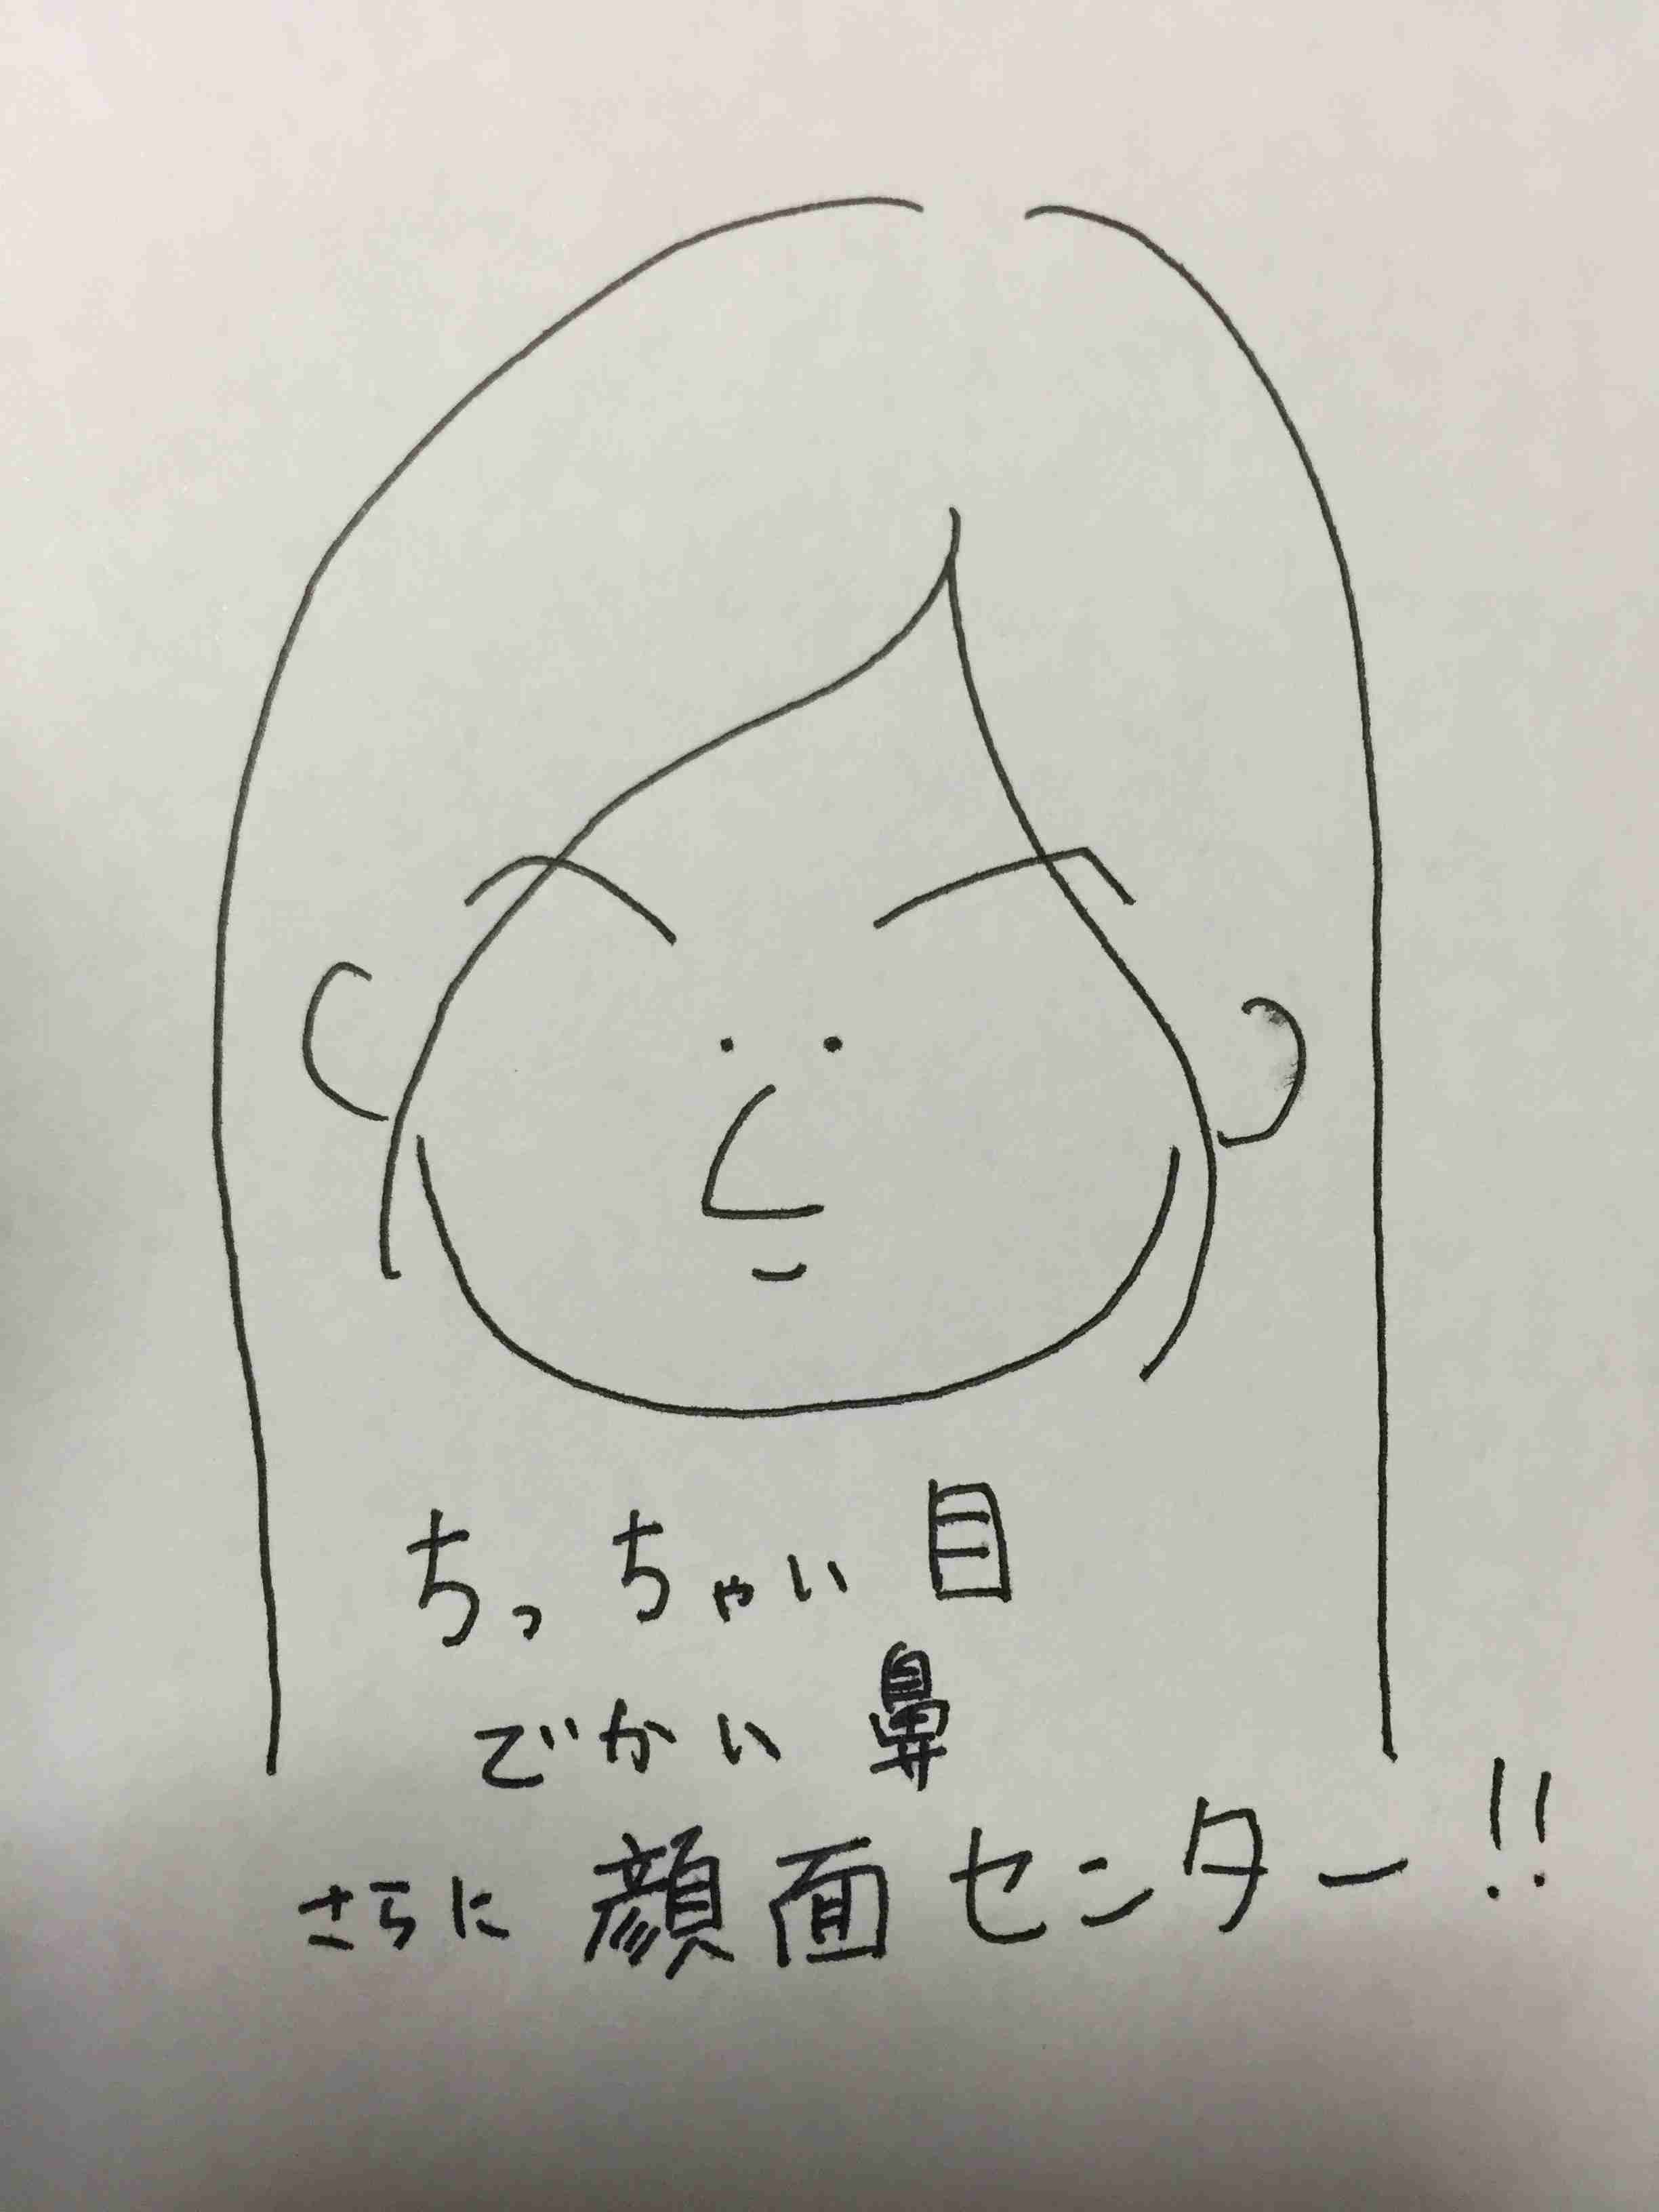 ちっちゃい目
でかい鼻
さらに顔面センター!!